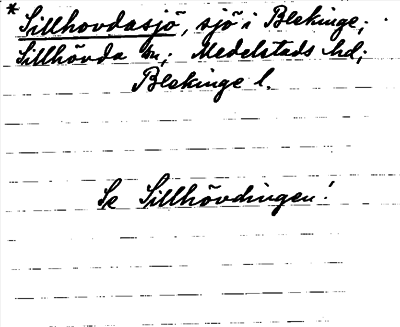 * Sillhovdasjö, sjö i Blekinge;
Sillhövda sn; Medelstads hd;
Blekinge l.
Se Sillhövdingen!